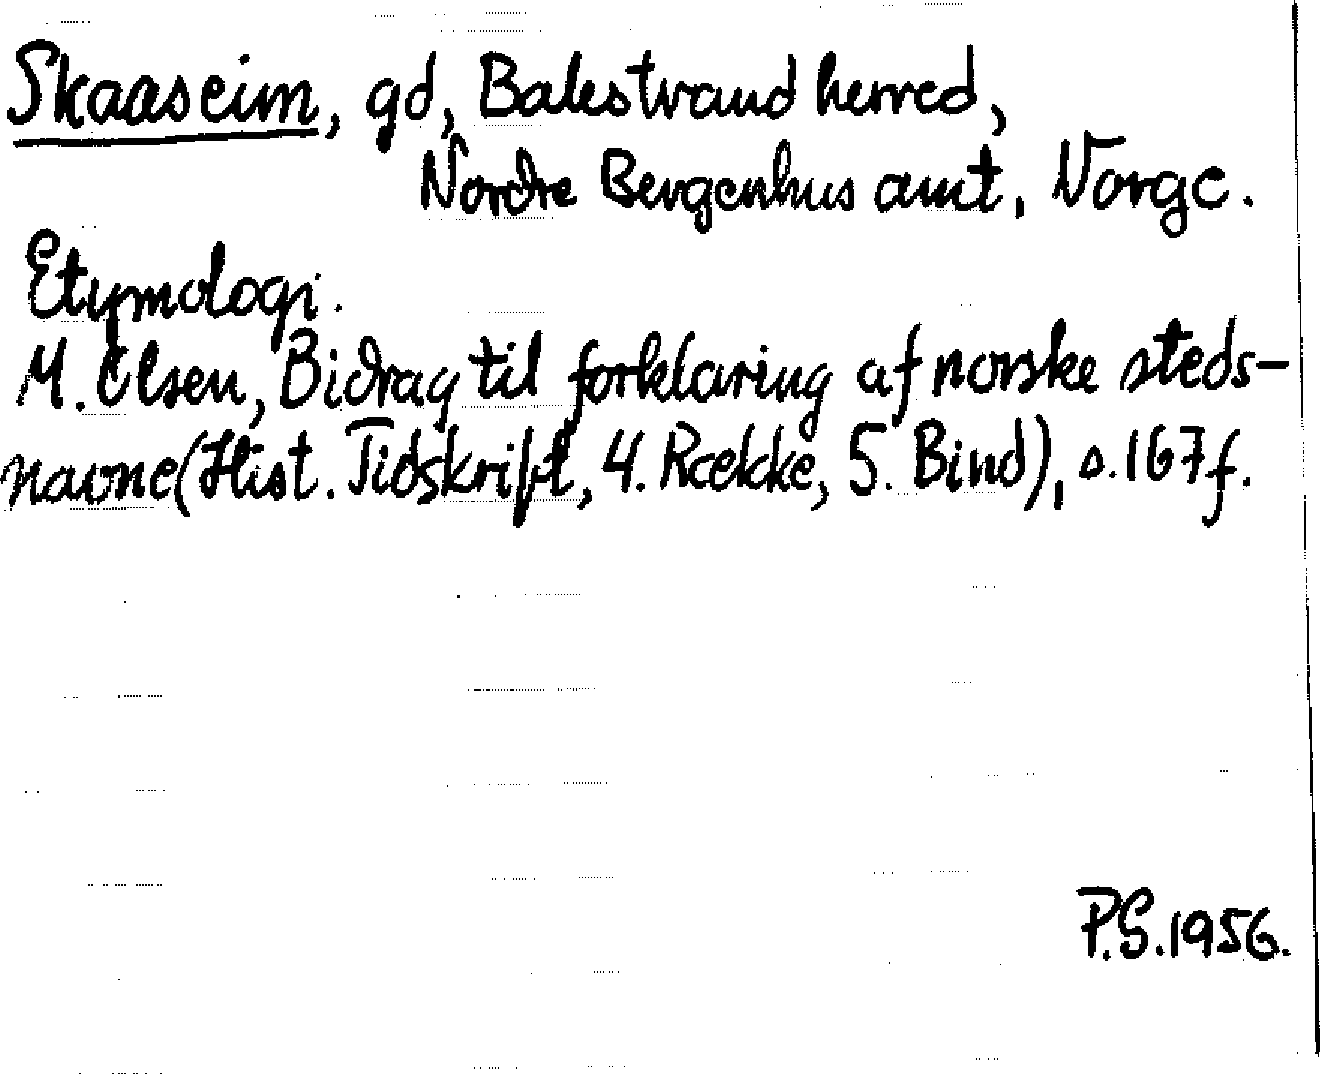 Skaaseim, gd, Balestrand herred,
Nordre Bergenhus amt, Norge.
Etymologi.
M. Olsen, Bidrag til forklaring af norske steds-
navne (Hist. Tidskrift, 4. Række, 5. Bind), s. 167 f.
P.S. 1956.